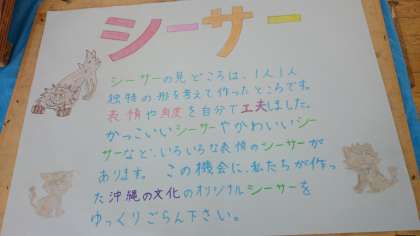 シーサー
シーサーの見どころは、1人1人
独特の形を考えて作ったところです。
表情や角度を自分で工夫しました。
かっこいいシーサーやかわいいシー
サーなど、いろいろな表情のシーサーが
あります。この機会に、私たちが作っ
た沖縄の文化のオリジナルシーサーを
ゆっくりごらん下さい。